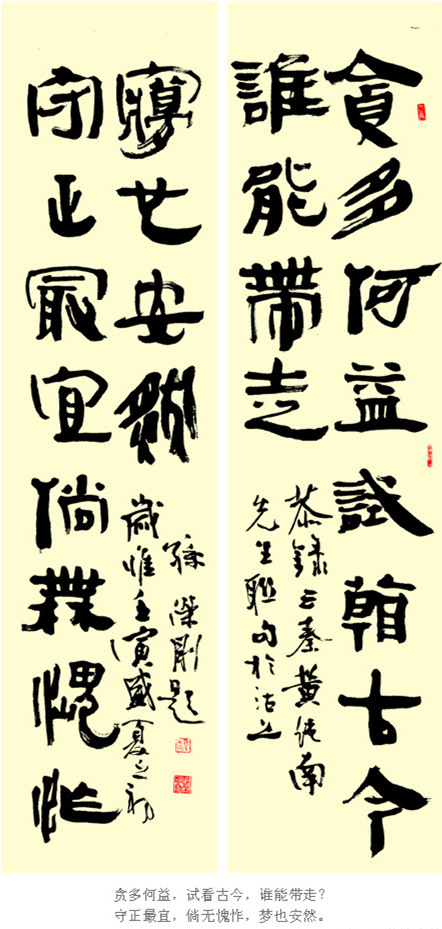 貪多何益試看古今
誰能帶走
恭録三秦黄従南
先生联句於
守正最宜倘無愧怍
夢也安然
歲惟壬寅盛夏之初
孫 剛題
贪多何益，试看古今，谁能带走？
守正最宜，倘无愧怍，梦也安然。